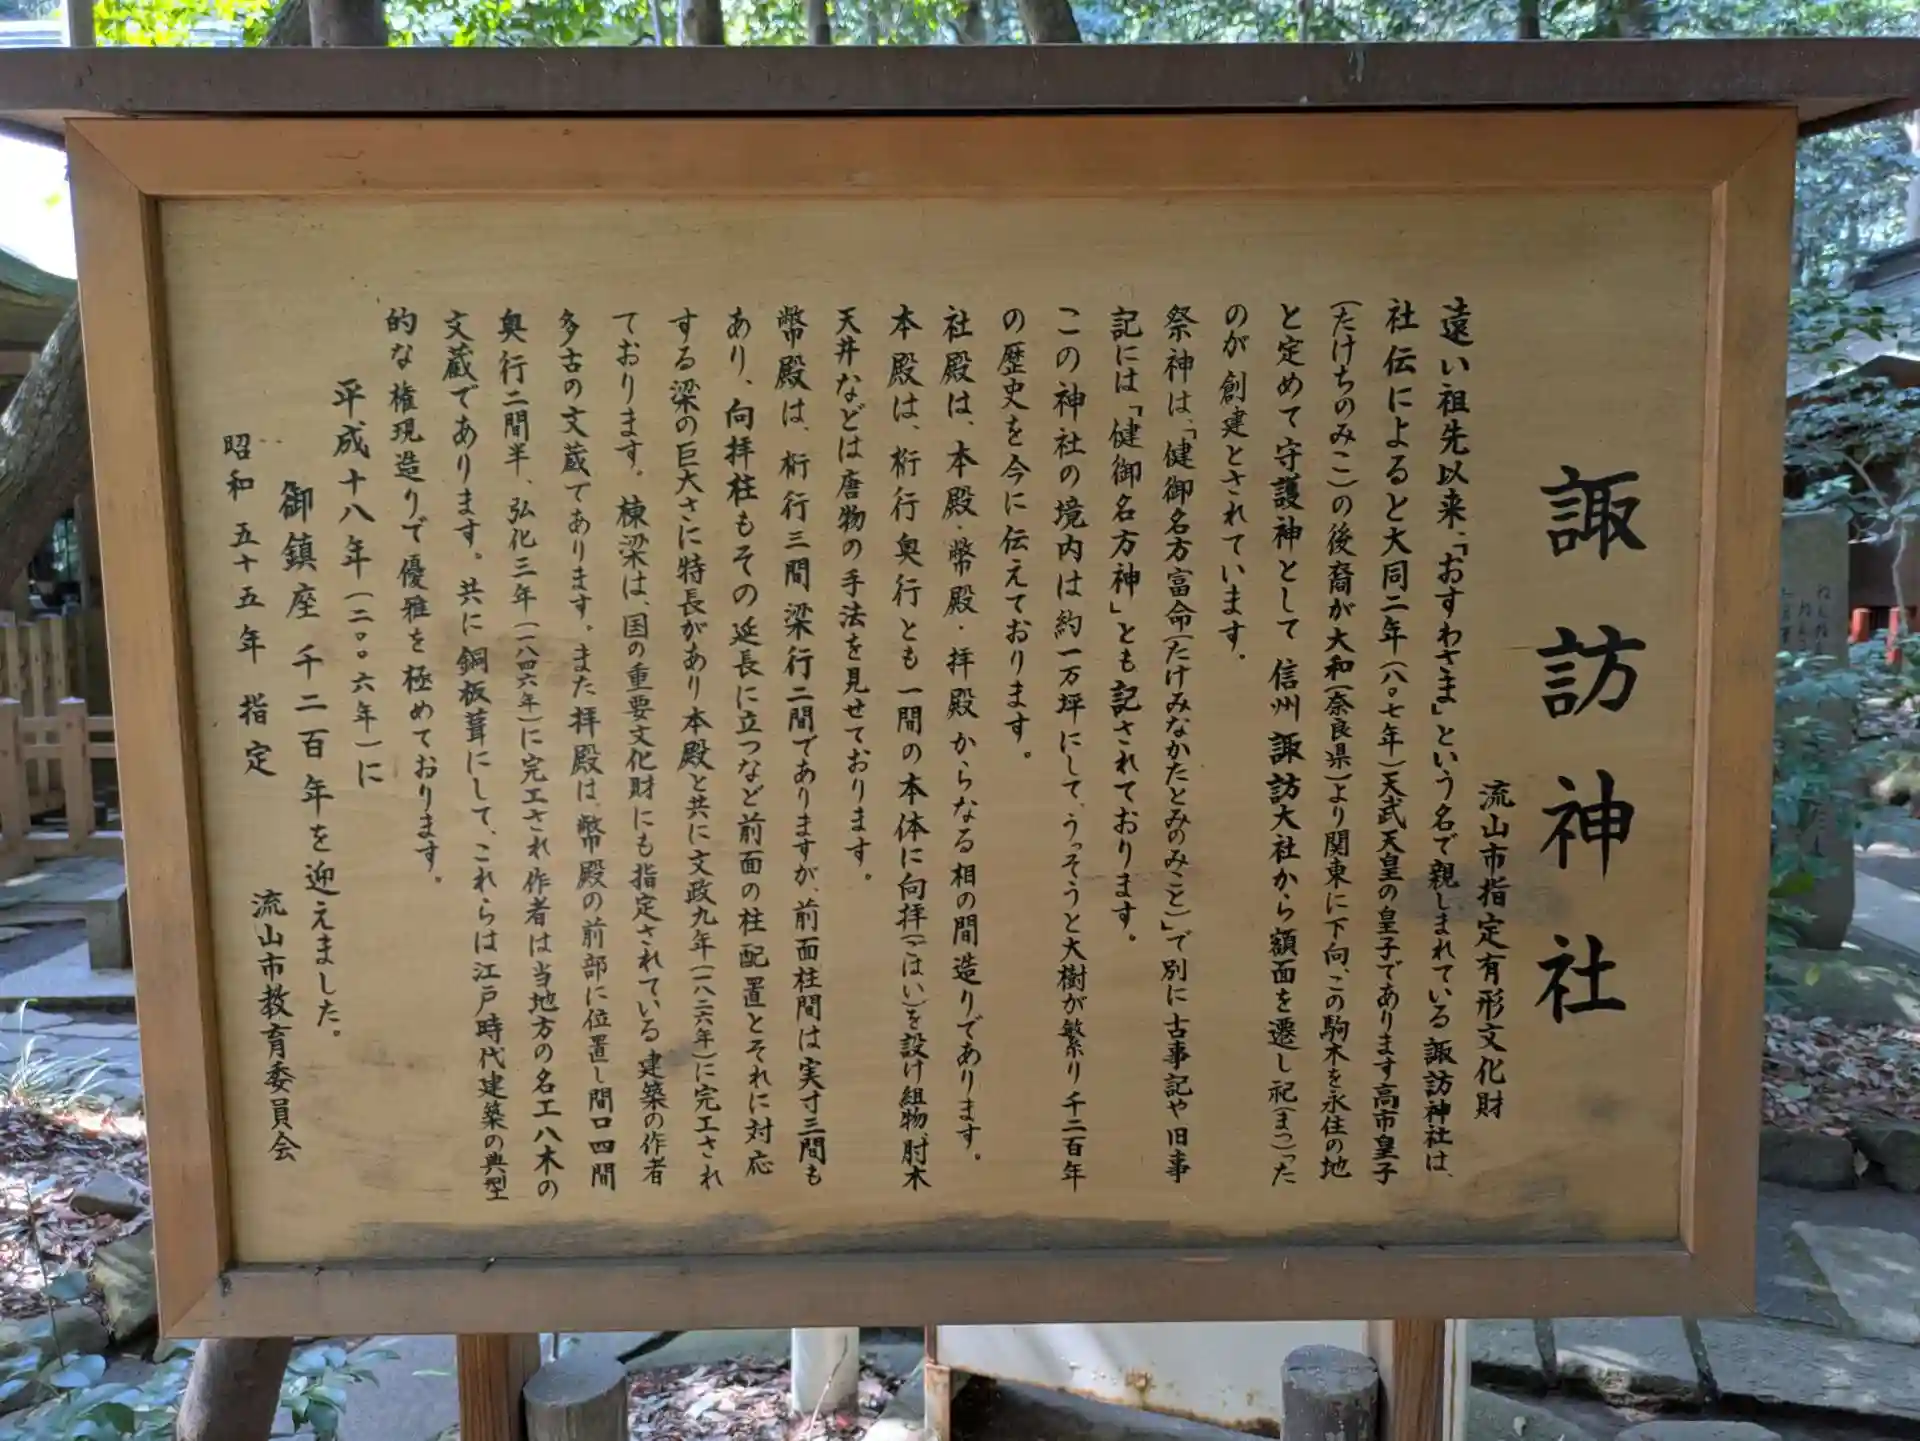 諏訪神社
流山市指定有形文化財
遠い祖先以来、「おすわさま」という名で親しまれている諏訪神社は、
社伝によると大同二年(八〇七年)天武天皇の皇子であります高市皇子
(たけちのみこ)の後裔が大和(奈良県)より関東に下向、この駒木を永住の地
と定めて守護神として信州諏訪大社から額面を遷し祀(まつ)った
のが創建とされています。
祭神は、「健御名方富命(たけみなかたとみのみこと)」で別に古事記や旧事
記には「健御名方神」とも記されております。
この神社の境内は約一万坪にして、うっそうと大樹が繁り千二百年
の歴史を今に伝えております。
社殿は、本殿・幣殿・拝殿からなる相の間造りであります。
本殿は、桁行奥行とも一間の本体に向拝(ごはい)を設け組物、肘木
天井などは唐物の手法を見せております。
幣殿は、桁行三間梁行二間でありますが、前面柱間は実寸三間も
あり、向拝柱もその延長に立つなど前面の柱配置とそれに対応
する梁の巨大さに特長があり本殿と共に文政九年(一八二六年)に完工され
ております。棟梁は、国の重要文化財にも指定されている建築の作者
多古の文蔵であります。また拝殿は、幣殿の前部に位置し間口四間
奥行二間半、弘化三年(一八四六年)に完工され作者は当地方の名工八木の
文蔵であります。共に銅板葺にして、これらは江戸時代建築の典型
的な権現造りで優雅を極めております。
平成十八年(二〇〇六年)に
御鎮座 千二百年を迎えました。
昭和五十五年 指定
流山市教育委員会